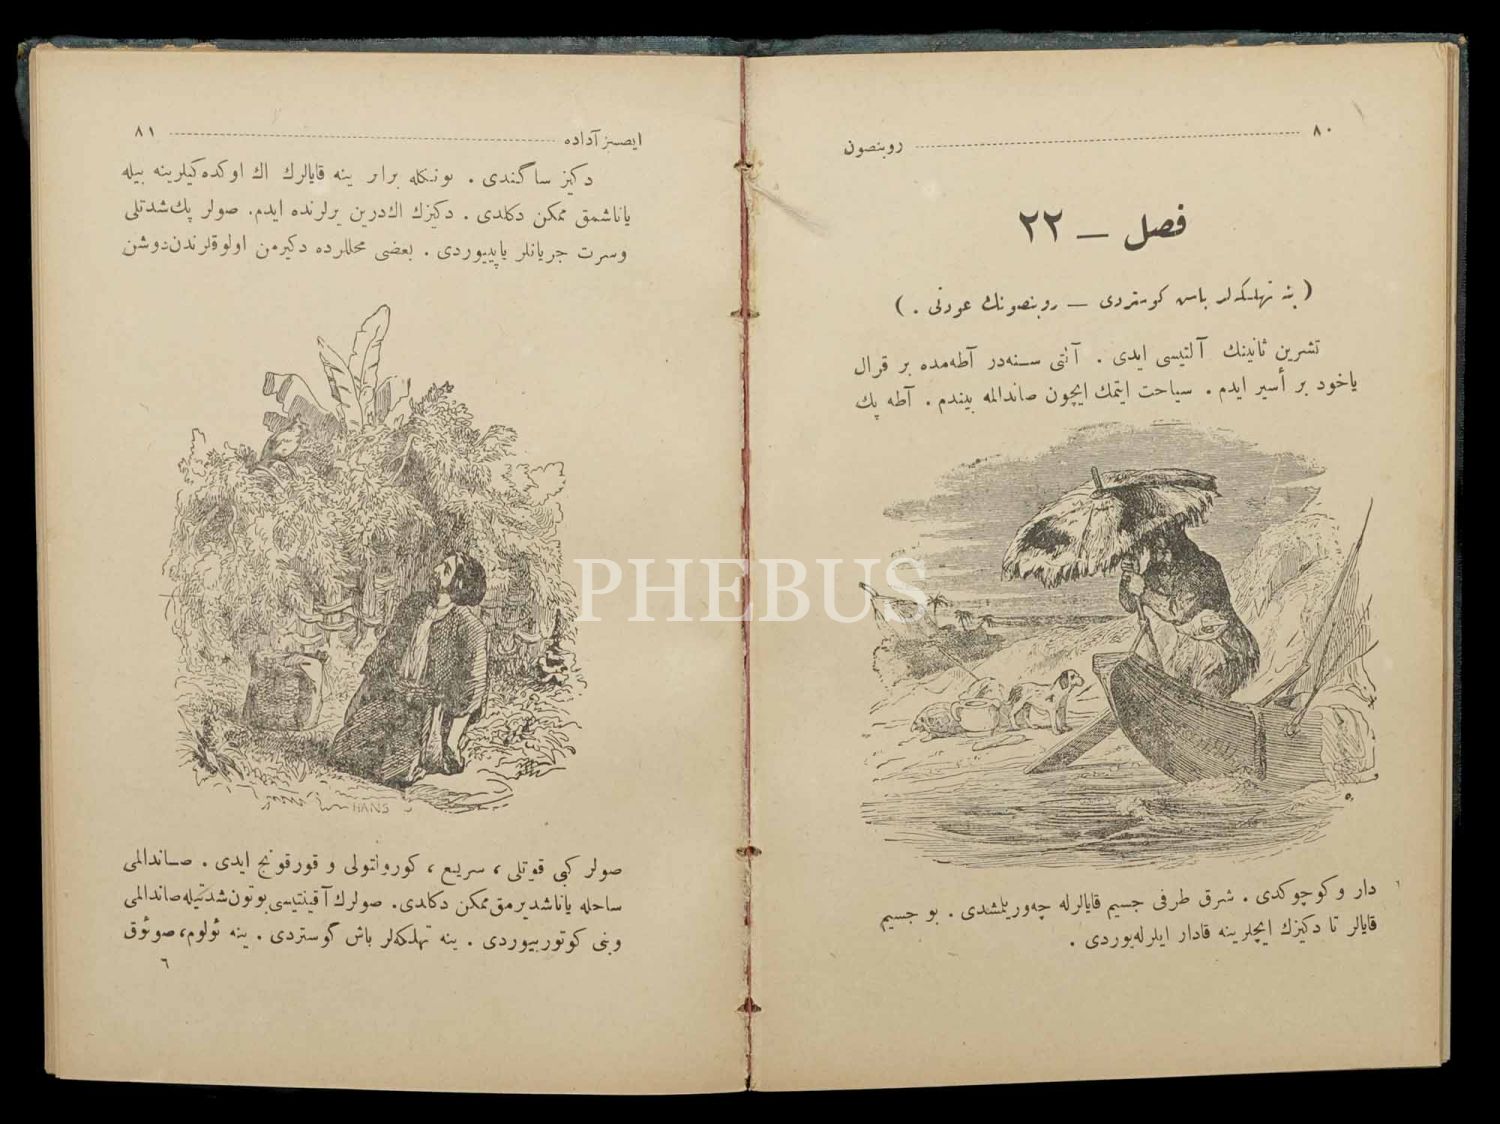 ٨٠ روبنصون
فصل — ٢٢
( ينه تهلكه‌لر باش كوستردى — روبنصونك عودتى . )
تشرين ثانينك آلتيسى ايدى . آلتى سنه‌در آطه‌مده بر قرال
ياخود بر أسير ايدم . سياحت ايتمك ايچون صاندالمه بيندم . آطه پك
دار و كوچوكدى . شرق طرفى جسيم قايالرله چه‌وريلمشدى . بو جسيم
قايالر تا دكيزك ايچلرينه قادار ايلرله‌يوردى .
ايصسز آداده ٨١
دكيز ساكندى . بونكله برابر ينه قايالرك اك اوكده‌كيلرينه بيله
ياناشمق ممكن دكلدى . دكيزك اك‌درين يرلرنده ايدم. صولر پك‌شدتلى
وسرت جريانلر ياپييوردى . بعضى محللرده دكيرمن اولوقلرندن‌دوشن
HANS
صولر كبى قوتلى ، سريع ، كورولتولى و قورقونج ايدى . صاندالمى
ساحله ياناشديرمق‌ممكن دكلدى. صولرك‌آقينتيسى‌بوتون‌شدتيله‌صاندالمى
وبنى كوتوريیوردى . ينه تهلكه‌لر باش گوستردى . ينه ئولوم، صوئوق
٦
PHEBUS